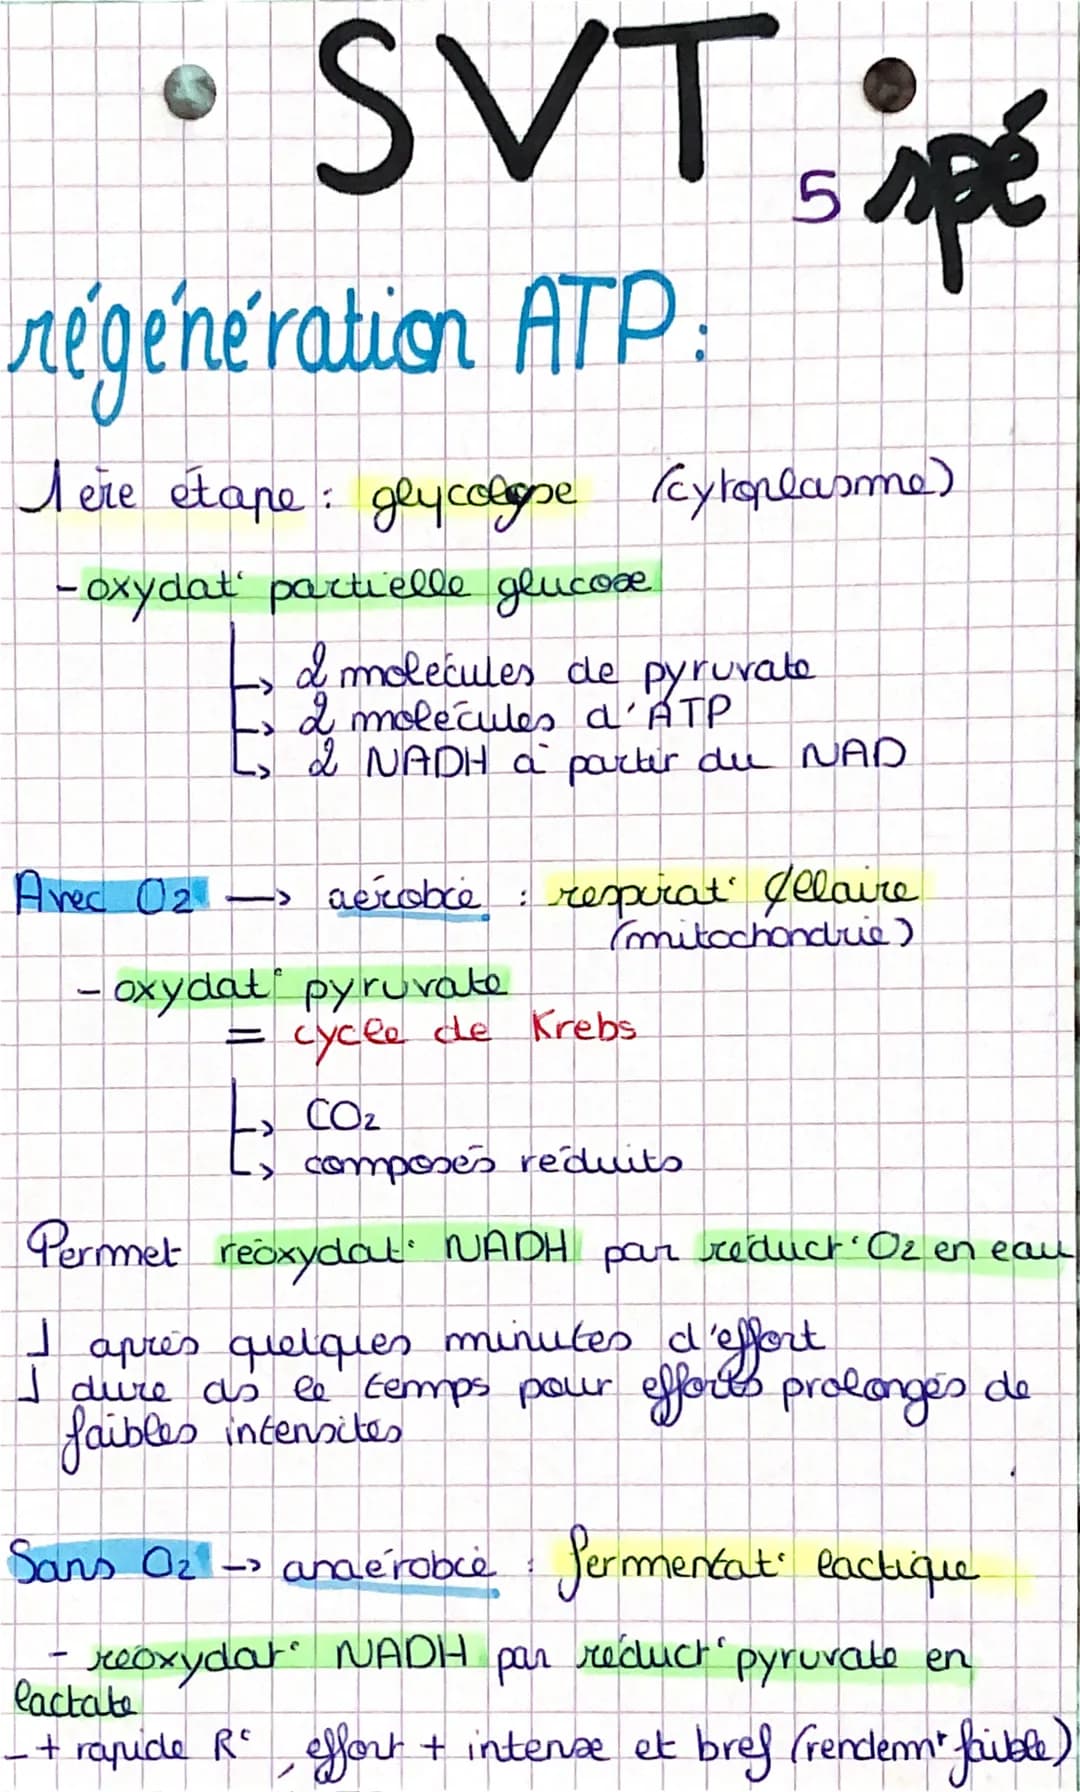 • SVT •
5 spé
régénération ATP :
1ère étape : glycolyse (cytoplasme)
- oxydat° partielle glucose
↳ 2 molécules de pyruvate
↳ 2 molécules d'ATP
↳ 2 NADH à partir du NAD
Avec O2 → aérobie : respirat° ¢ellaire
(mitochondrie)
- oxydat° pyruvate
= cycle de Krebs
↳ CO2
↳ composés réduits
Permet réoxydat° NADH par réduct° O2 en eau
après quelques minutes d'effort
dure ds le temps pour efforts prolongés de
faibles intensités
Sans O2 → anaérobie : fermentat° lactique
- réoxydat° NADH par réduct° pyruvate en
lactate
- + rapide R°, effort + intense et bref (rendemt faible)